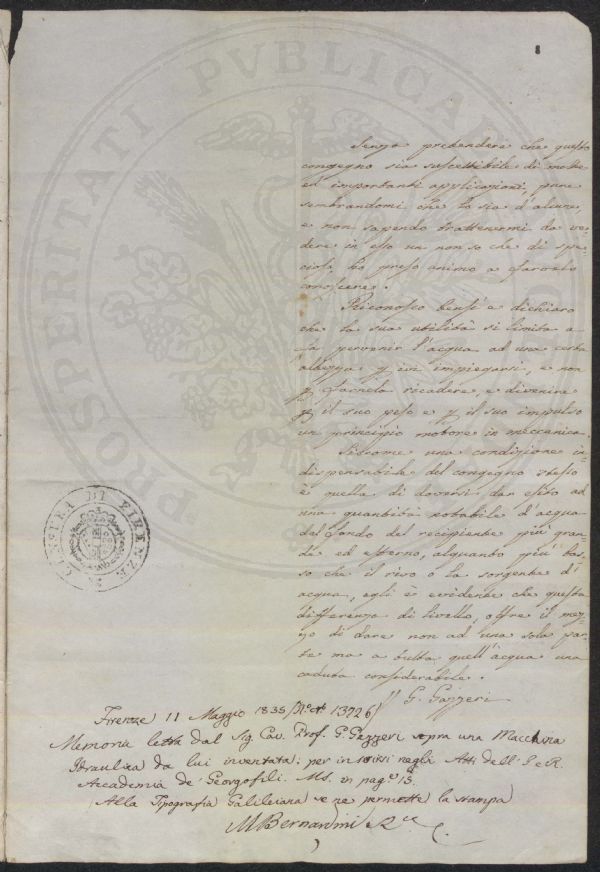 8
Senza pretendere che questo
congegno sia suscettibile di molte
ed importanti applicazioni, pure
sembrandomi che lo sia d'alcune,
e non sapendo trattenermi da ve-
dere in esso un non so che di spe-
cioso, ho preso animo a farvelo
conoscere.
Riconosco bensì e dichiaro
che la sua utilità si limita a
fa pervenir l'acqua ad una certa
altezza p ivi impiegarsi, e non
p farnela ricadere, e divenire
p il suo peso e p il suo impulso
un principio motore in meccanica.
Siccome una condizione in-
dispensabile del congegno stesso
è quella di doversi dar esito ad
una quantità notabile d'acqua
dal fondo del recipiente più gran-
de ed esterno, alquanto più bas-
so che il rivo o la sorgente d'
acqua, egli è evidente che questa
differenza di livello, offre il mez-
zo di dare non ad una sola par-
te ma a tutta quell'acqua una
caduta considerabile.
G. Gazzeri
Firenze 11 Maggio 1835 13926
Memoria letta dal Sig. Cav. Prof. G. Gazzeri sopra una Macchina
Idraulica da lui inventata; per inserirsi negli Atti dell'I. e R.
Accademia de' Georgofili. Ms. in pag.e 15.
Alla Tipografia Galileiana se ne permette la stampa
M. Bernardini R.
CENSURA DI FIRENZE
PROSPERITATI PVBLICAE